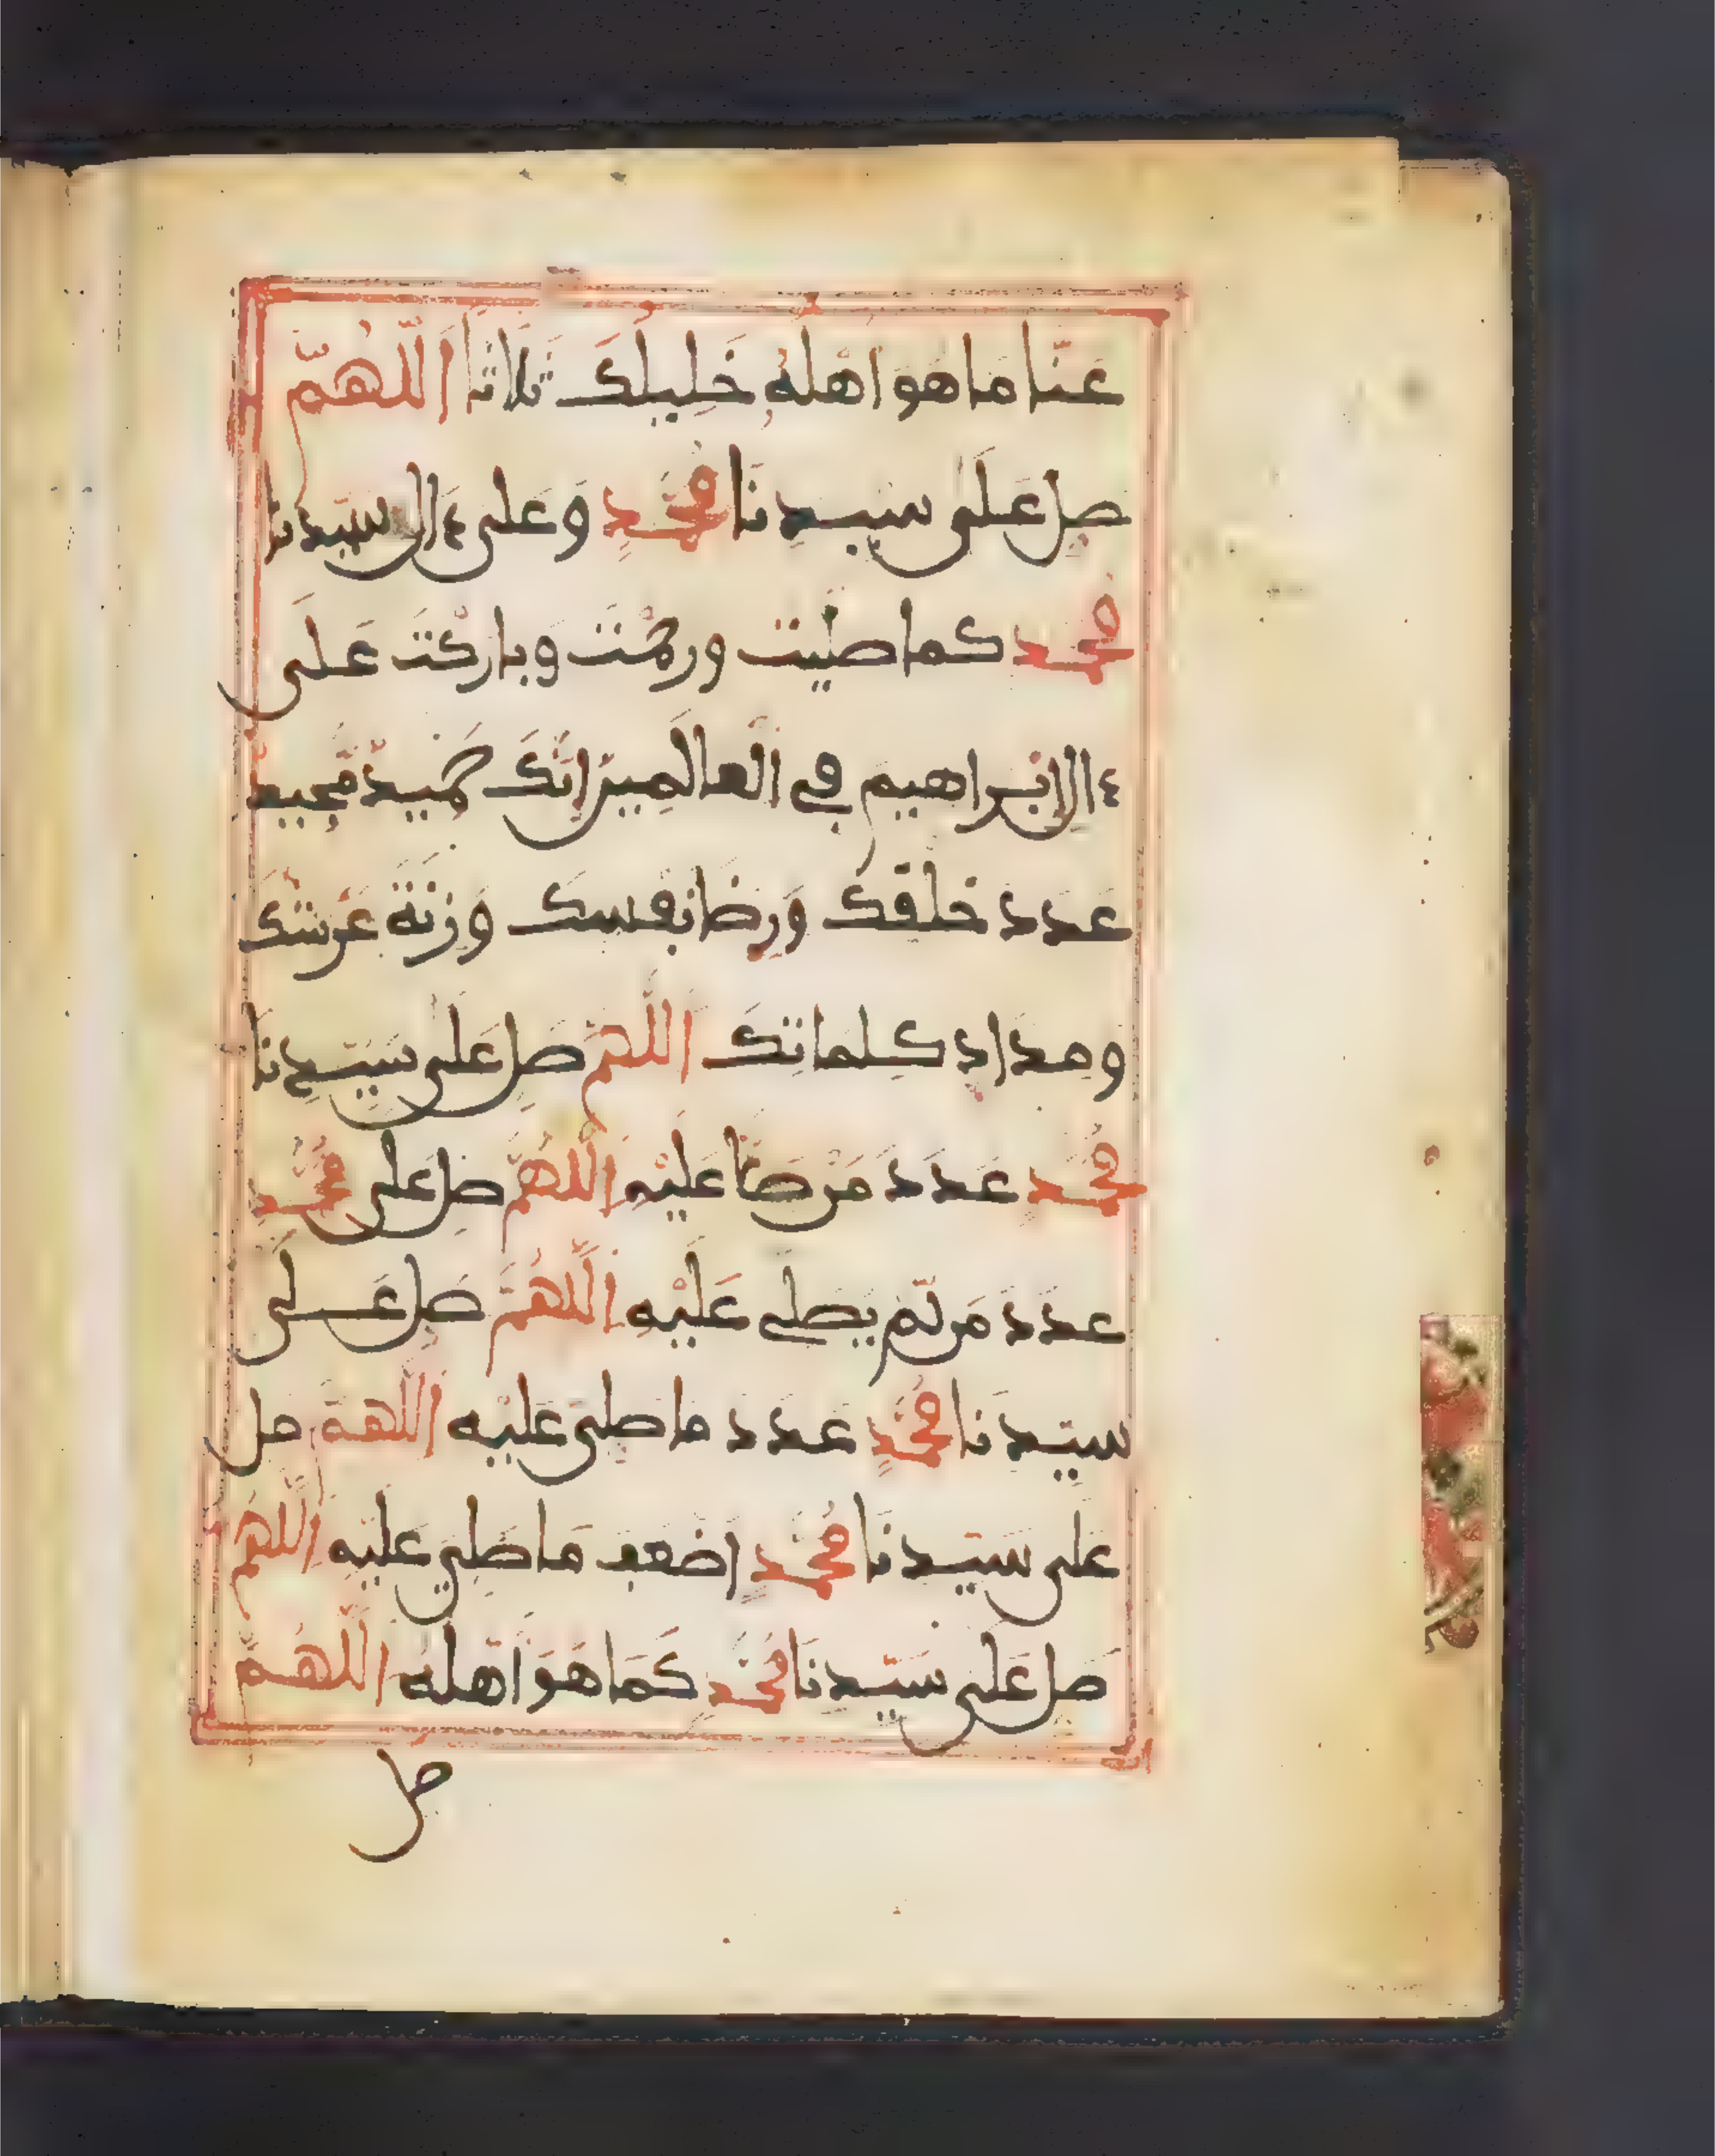 عنّا ما هو اهله خليلك ثلاثا اللهمّ
صل على سيدنا محمد وعلى ءال سيدنا
محمد كما صليت ورحمت وباركت على
ءال ابراهيم في العالمين انك حميد مجيد
عدد خلقك ورضا نفسك وزنة عرشك
ومداد كلماتك اللهم صل على سيدنا
محمد عدد من صلى عليه اللهم صل على محمد
عدد من لم يصل عليه اللهم صل على
سيدنا محمد عدد ما صلى عليه اللهم صل
على سيدنا محمد اضعف ما صلي عليه اللهم
صل على سيدنا محمد كما هو اهله اللهم
صل